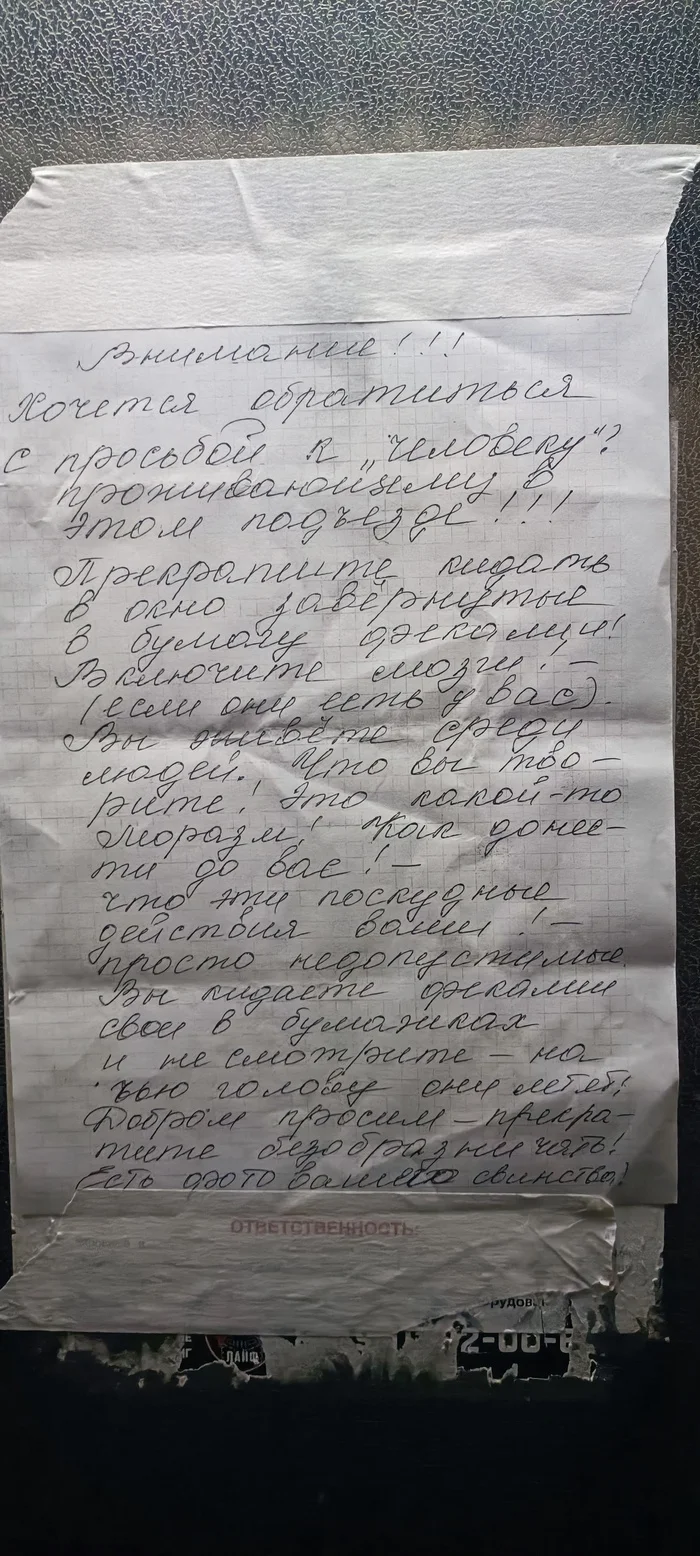 Внимание!!!
Хочется обратиться
с просьбой к „человеку"?
проживающему в
этом подъезде!!!
Прекратите кидать
в окно завёрнутые
в бумагу фекалии!
Включите мозги! –
(если они есть у вас).
Вы живёте среди
людей. Что вы тво–
рите! Это какой-то
Моразм! Как донес–
ти до вас! –
что эти поскудные
действия ваши! –
просто недопустимые.
Вы кидаете фекалии
свои в бумажках
и не смотрите – на
чью голову они летят!
Добром просим – прекра–
тите безобразничать!
Есть фото вашего свинства!
ОТВЕТСТВЕННОСТЬ:
РУДОВ
ЛАЙФ
2-00-